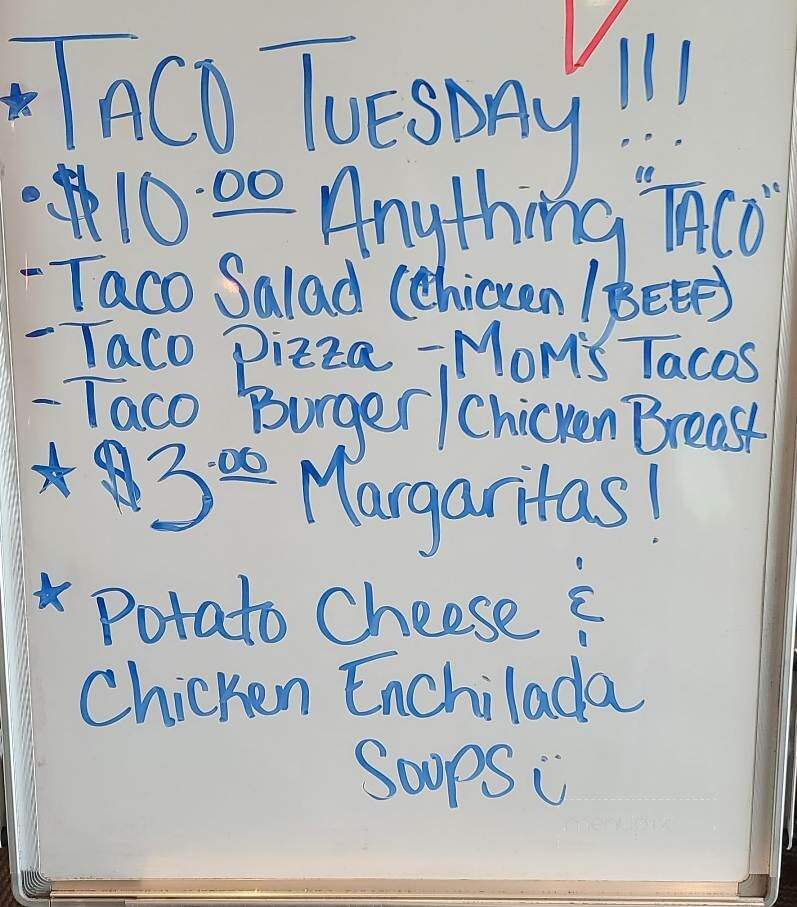 ★ TACO TUESDAY!!!
• $10.00 Anything "TACO"
- Taco Salad (Chicken / BEEF)
- Taco Pizza - MOM's Tacos
- Taco Burger / Chicken Breast
★ $3.00 Margaritas!
★ Potato Cheese &
Chicken Enchilada
Soups
menupix